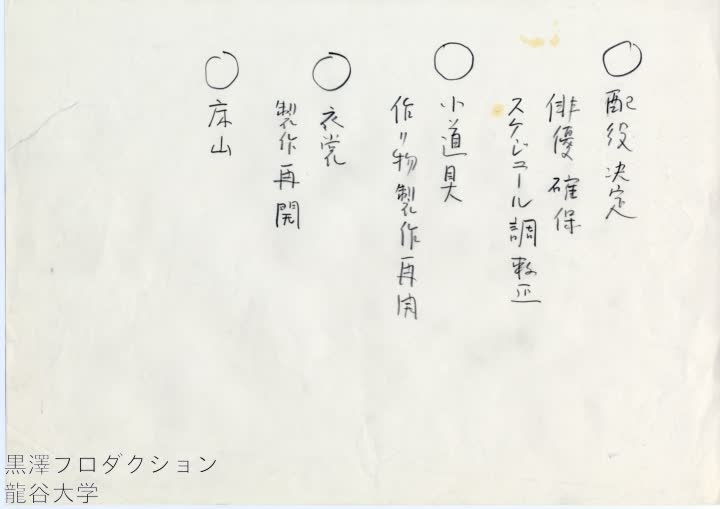 ○配役決定
俳優確保
スケジュール調整
○小道具
作り物製作再開
○衣裳
製作再開
○床山
黒澤プロダクション
龍谷大学